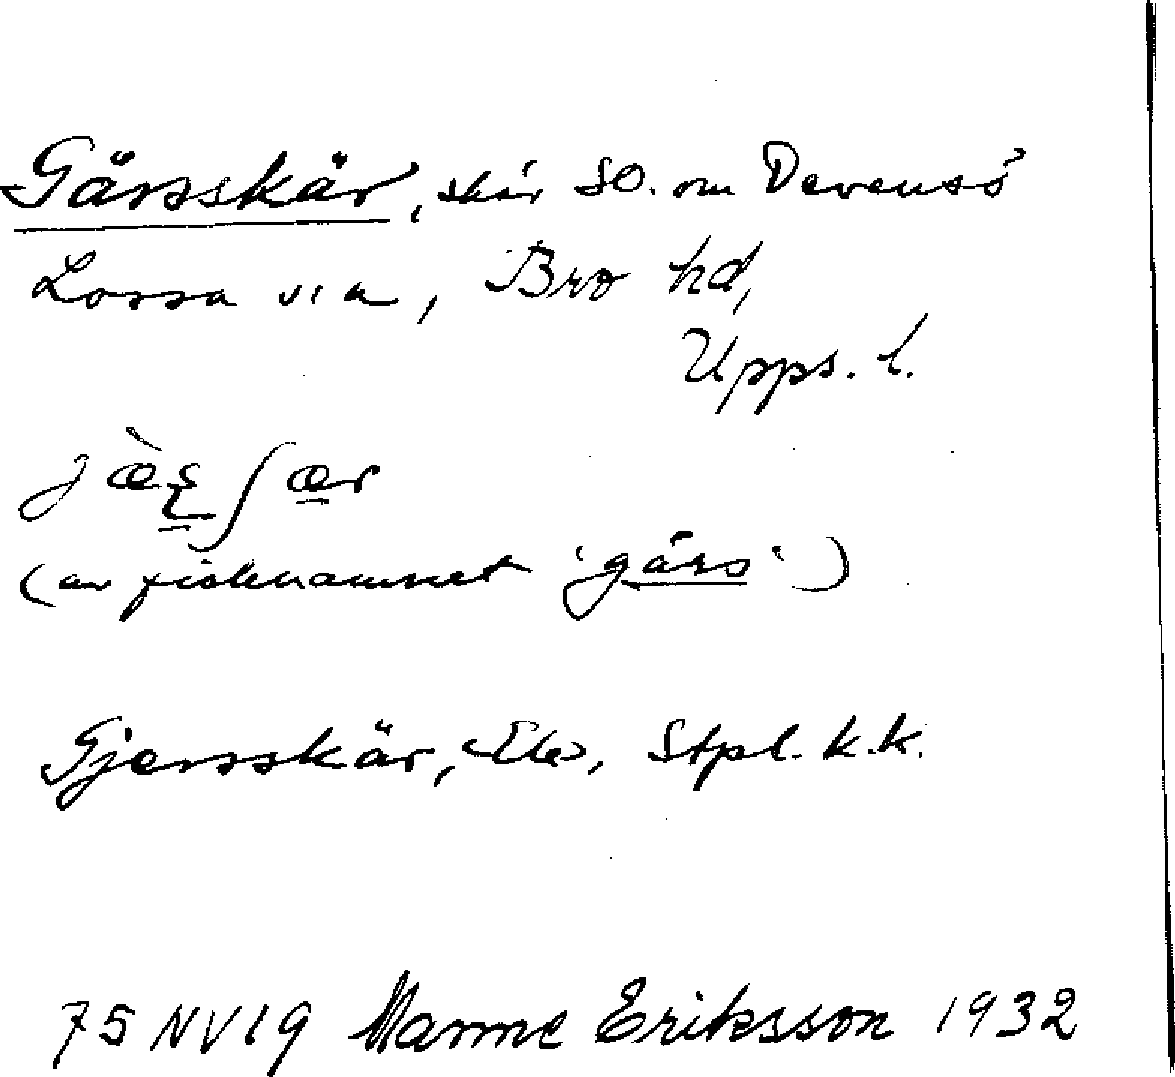 Gärsskär, skär SO. om Devensö
Lossa sn, Bro hd,
Upps. l.
(av fisknamnet 'gärs')
Gjersskär, Ek, Stpl. k.k.
75 NV 19 Manne Eriksson 1932